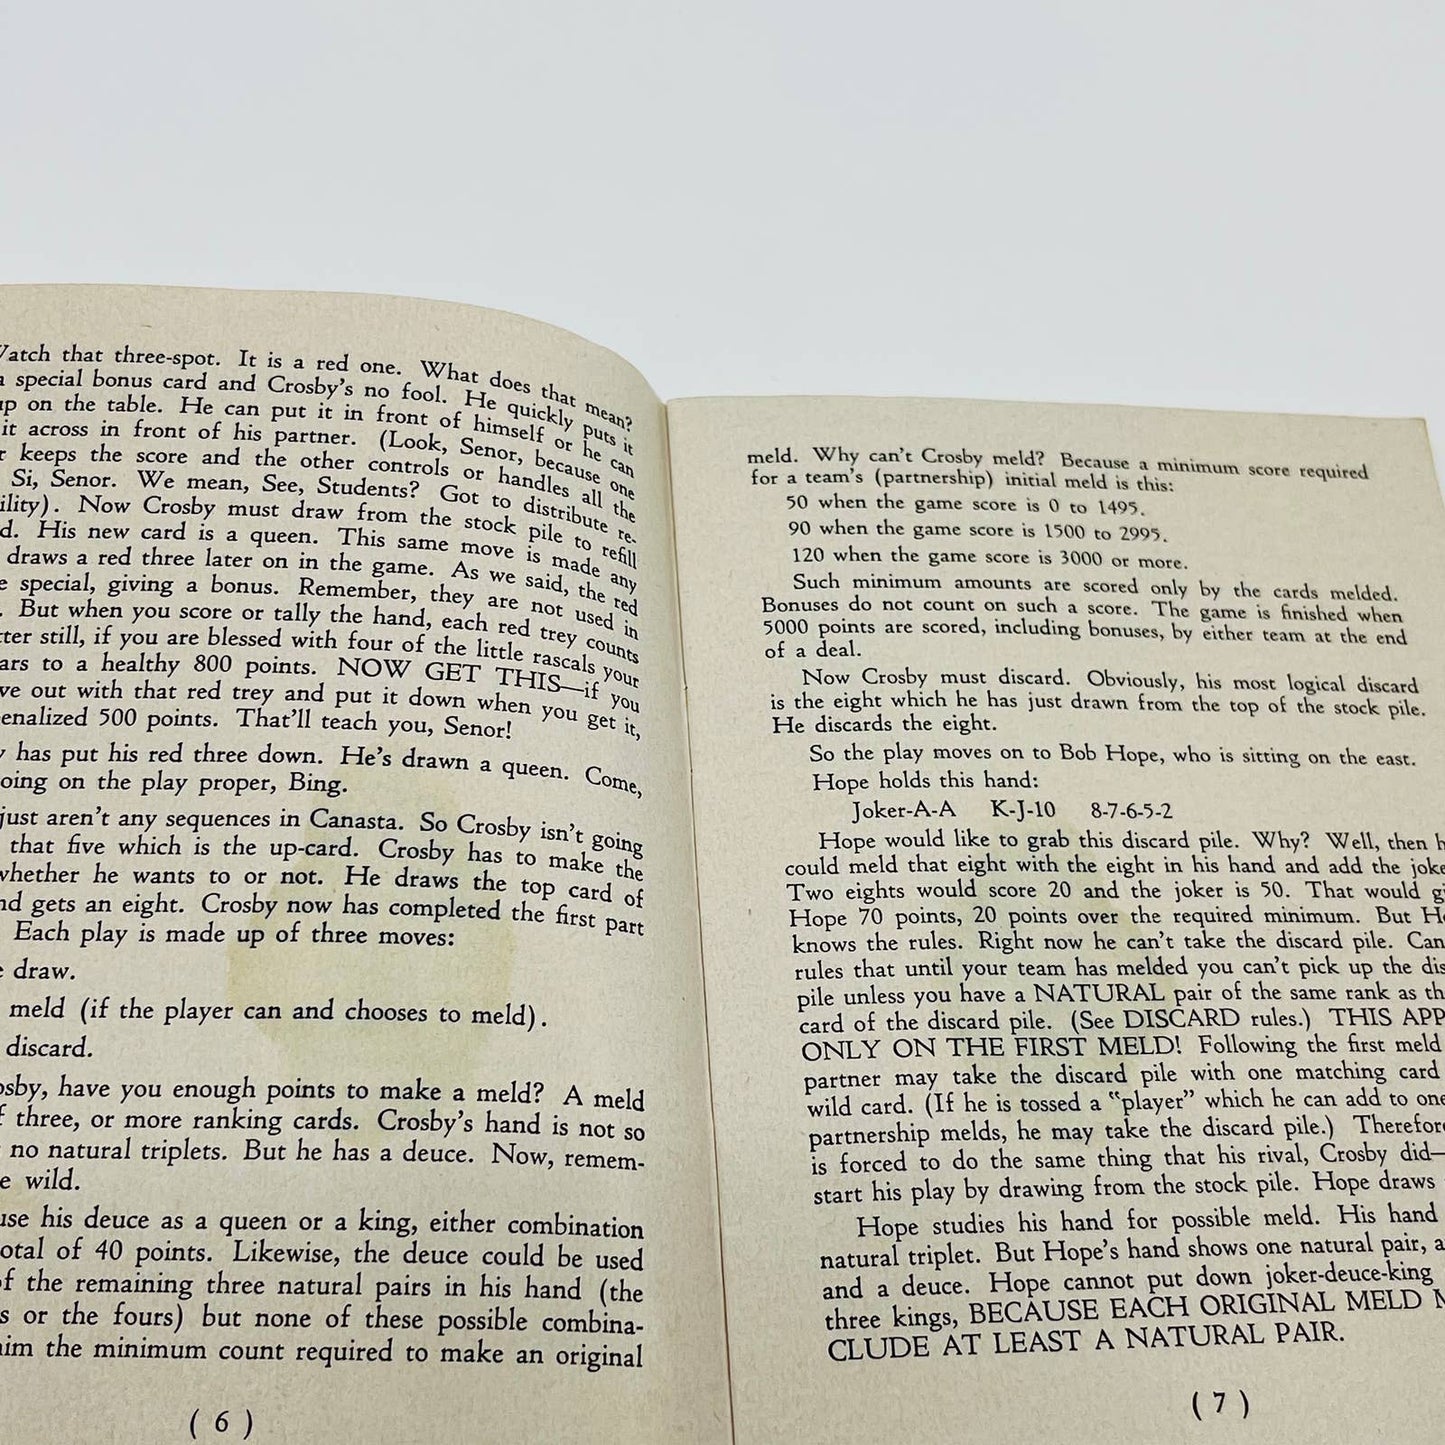 that three-spot. It is a red one. What does that mean?
special bonus card and Crosby's no fool. He quickly puts it
on the table. He can put it in front of himself or he can
it across in front of his partner. (Look, Senor, because one
keeps the score and the other controls or handles all the
Si, Senor. We mean, See, Students? Got to distribute re-
Now Crosby must draw from the stock pile to refill
His new card is a queen. This same move is made any
draws a red three later on in the game. As we said, the red
special, giving a bonus. Remember, they are not used in
But when you score or tally the hand, each red trey counts
still, if you are blessed with four of the little rascals your
to a healthy 800 points. NOW GET THIS—if you
out with that red trey and put it down when you get it,
500 points. That'll teach you, Senor!
has put his red three down. He's drawn a queen. Come,
on the play proper, Bing.
just aren't any sequences in Canasta. So Crosby isn't going
that five which is the up-card. Crosby has to make the
whether he wants to or not. He draws the top card of
gets an eight. Crosby now has completed the first part
Each play is made up of three moves:
draw.
meld (if the player can and chooses to meld).
discard.
have you enough points to make a meld? A meld
three, or more ranking cards. Crosby's hand is not so
no natural triplets. But he has a deuce. Now, remem-
wild.
his deuce as a queen or a king, either combination
of 40 points. Likewise, the deuce could be used
of the remaining three natural pairs in his hand (the
or the fours) but none of these possible combina-
the minimum count required to make an original
( 6 )
meld. Why can't Crosby meld? Because a minimum score required
for a team's (partnership) initial meld is this:
50 when the game score is 0 to 1495.
90 when the game score is 1500 to 2995.
120 when the game score is 3000 or more.
Such minimum amounts are scored only by the cards melded.
Bonuses do not count on such a score. The game is finished when
5000 points are scored, including bonuses, by either team at the end
of a deal.
Now Crosby must discard. Obviously, his most logical discard
is the eight which he has just drawn from the top of the stock pile.
He discards the eight.
So the play moves on to Bob Hope, who is sitting on the east.
Hope holds this hand:
Joker-A-A K-J-10 8-7-6-5-2
Hope would like to grab this discard pile. Why? Well, then
could meld that eight with the eight in his hand and add the
Two eights would score 20 and the joker is 50. That would
Hope 70 points, 20 points over the required minimum. But
knows the rules. Right now he can't take the discard pile.
rules that until your team has melded you can't pick up the
pile unless you have a NATURAL pair of the same rank as
card of the discard pile. (See DISCARD rules.) THIS
ONLY ON THE FIRST MELD! Following the first meld
partner may take the discard pile with one matching card
wild card. (If he is tossed a "player" which he can add to
partnership melds, he may take the discard pile.)
is forced to do the same thing that his rival, Crosby did—
start his play by drawing from the stock pile. Hope draws
Hope studies his hand for possible meld. His hand
natural triplet. But Hope's hand shows one natural pair,
and a deuce. Hope cannot put down joker-deuce-king
three kings, BECAUSE EACH ORIGINAL MELD
CLUDE AT LEAST A NATURAL PAIR.
( 7 )